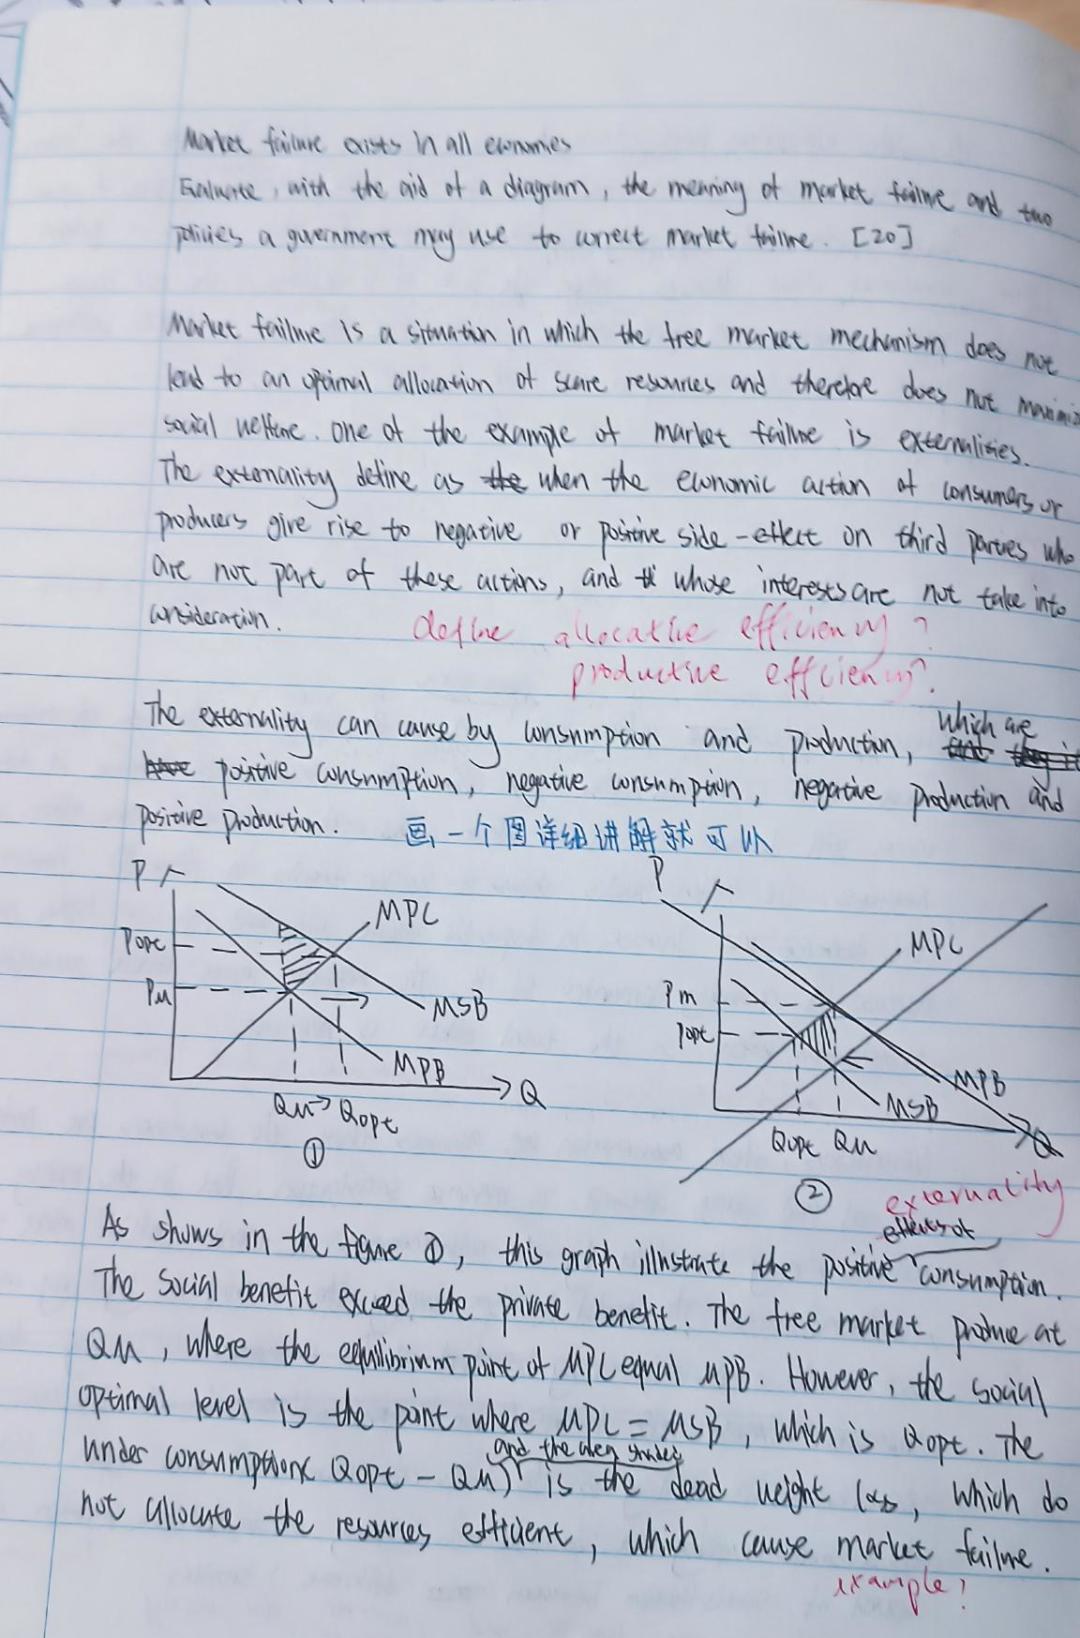 Market failure exists in all economies
Evaluate, with the aid of a diagram, the meaning of market failure and two
policies a government may use to correct market failure. [20]
Market failure is a situation in which the free market mechanism does not
lead to an optimal allocation of scare resources and therefore does not maximiz
social welfare. One of the example of market failure is externalities.
The externality define as the when the economic action of consumers or
producers give rise to negative or positive side-effect on third parties who
are not part of these actions, and whose interests are not take into
consideration.
define allocative efficiency?
productive efficiency?
The externality can cause by consumption and production, which are
have positive consumption, negative consumption, negative production and
positive production. 画一个图详细讲解就可以
P
P
MPC
MPC
Popt
Pm
Pm
Popt
MSB
MPB
MPB
MSB
Q
Qm → Qopt
Qopt Qm
Q
①
②
externality
effects of
As shows in the figure ①, this graph illustrate the positive consumption.
The social benefit exceed the private benefit. The free market produce at
Qm, where the equilibrium point of MPC equal MPB. However, the social
optimal level is the point where MPC = MSB, which is Qopt. The
and the area shaded
under consumption( Qopt - Qm) is the dead weight loss, which do
not allocate the resources efficient, which cause market failure.
example?